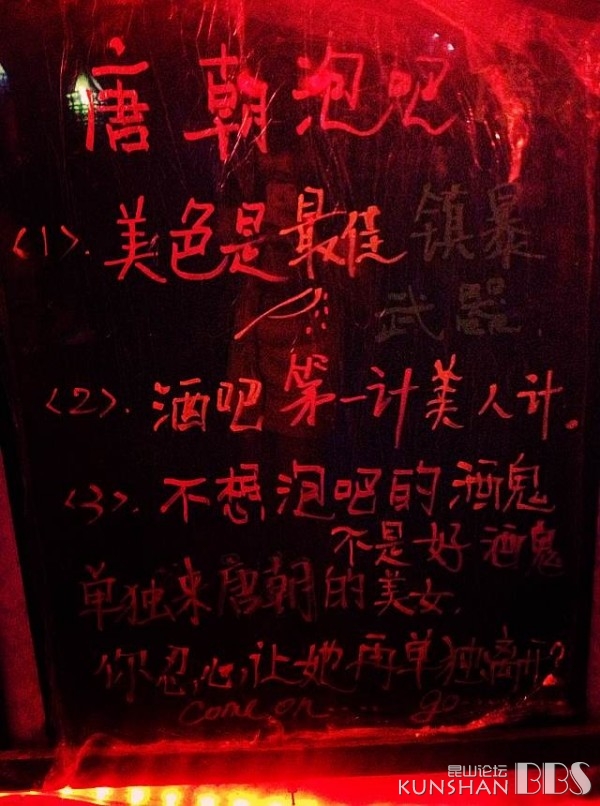 唐朝泡吧
<1>. 美色是最佳镇暴
武器.
<2>. 酒吧第一计美人计。
<3>. 不想泡吧的酒鬼
不是好酒鬼
单独来唐朝的美女.
你忍心让她再单独离开?
come on..... go.........
昆山论坛
KUNSHAN BBS